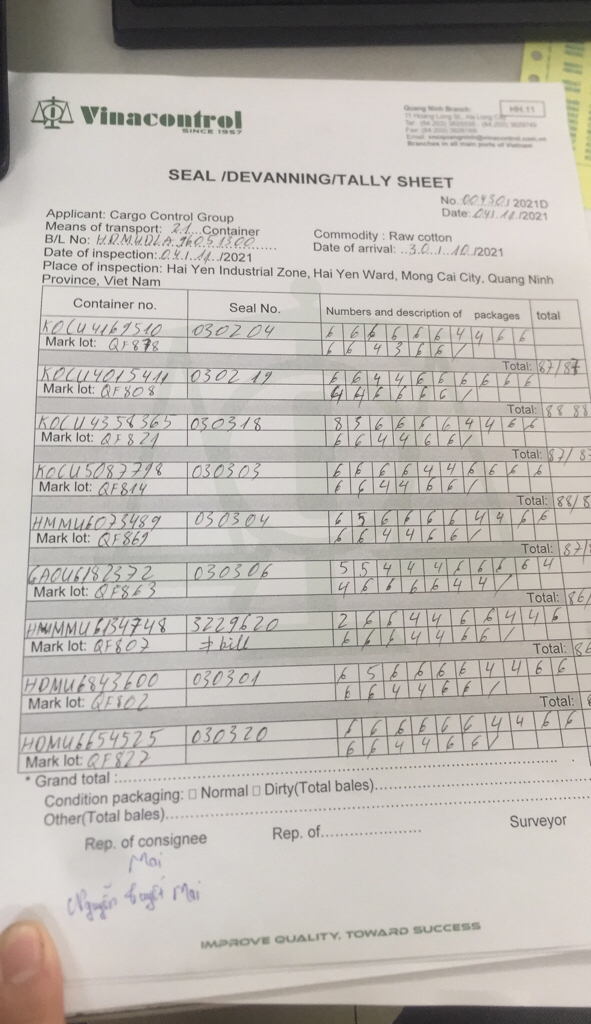 Vinacontrol
SINCE 1957
Quang Ninh Branch:
HH.11
SEAL /DEVANNING/TALLY SHEET
No. 00430/ 2021D
Date: 04/ 11 /2021
Applicant: Cargo Control Group
Means of transport: 21 Container
Commodity : Raw cotton
B/L No: HDMUDLA 96051300
Date of arrival: 30 / 10 /2021
Date of inspection: 04 / 11 /2021
Place of inspection: Hai Yen Industrial Zone, Hai Yen Ward, Mong Cai City, Quang Ninh
Province, Viet Nam
Container no. Seal No. Numbers and description of packages total
KOCU4169510 030204 6 6 6 6 6 6 4 4 6 6
Mark lot: QF878 6 6 4 3 6 6 /
Total: 87/87
KOCU4015411 030219 6 6 4 4 6 6 6 6 6 6
Mark lot: QF808 4 4 6 6 6 6 /
Total: 88 88
KOCU4358365 030318 8 5 6 6 6 6 4 4 6 6
Mark lot: QF821 6 6 4 4 6 6 /
Total: 87/ 8
KOCU5087798 030303 6 6 6 6 4 4 6 6 6 6
Mark lot: QF814 6 6 4 4 6 6 /
Total: 88/8
HMMU6073489 030304 6 5 6 6 6 6 4 4 6 6
Mark lot: QF869 6 6 4 4 6 6 /
Total: 87/
GAOU6182372 030306 5 5 4 4 4 6 6 6 6 4
Mark lot: QF863 4 6 6 6 6 4 4 /
Total: 86/
HMMMU6134748 3229620 2 6 6 4 4 6 6 4 4 6
Mark lot: QF807 ≠ bill 6 6 6 4 4 6 6 /
Total: 86
HDMU6843600 030301 6 5 6 6 6 6 4 4 6 6
Mark lot: QF802 6 6 4 4 6 6 /
Total: 8
HDMU6654525 030320 6 6 6 6 6 6 4 4 6 6
Mark lot: QF822 6 6 4 4 6 6 /
* Grand total :
Condition packaging: □ Normal □ Dirty(Total bales)
Other(Total bales)
Rep. of consignee Rep. of Surveyor
Mai
Nguyễn Tuyết Mai
IMPROVE QUALITY, TOWARD SUCCESS